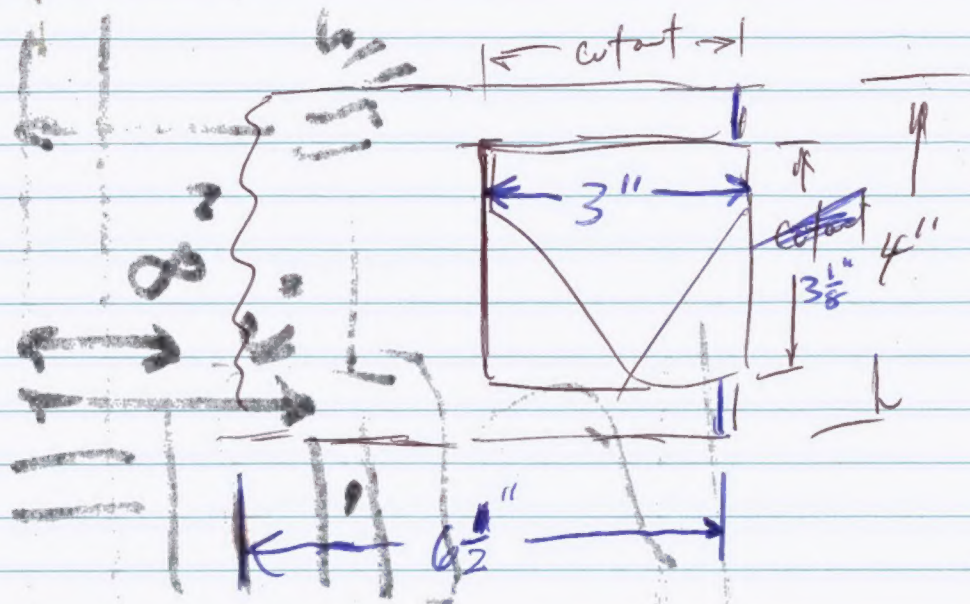 cutout
3"
cutout
4"
3 1/8"
6 1/2"